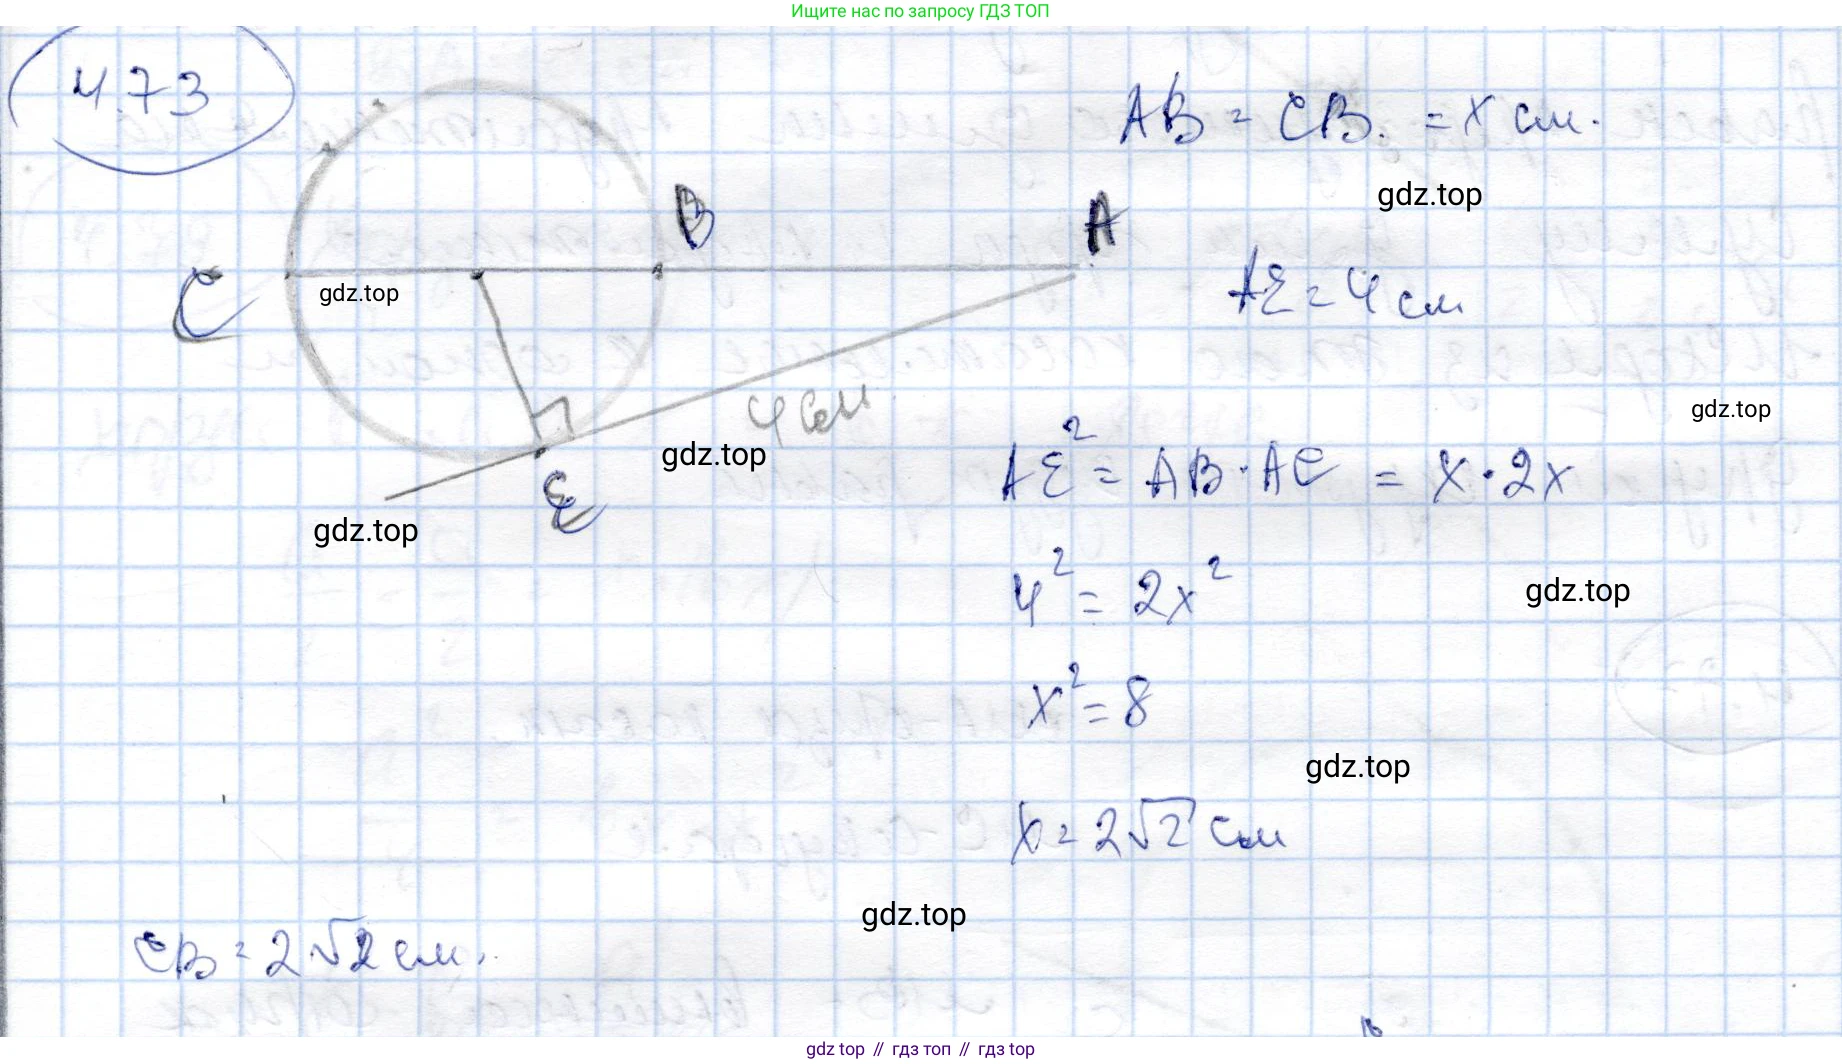 Ищите нас по запросу ГДЗ ТОП
4.73
AB = CB. = x см.
gdz.top
B
A
C
gdz.top
AE = 4 см
4 см
gdz.top
gdz.top
AE² = AB · AC = x · 2x
E
gdz.top
4² = 2x²
gdz.top
x² = 8
gdz.top
x = 2√2 см
gdz.top
CB = 2√2 см.
gdz top // гдз топ // гдз top